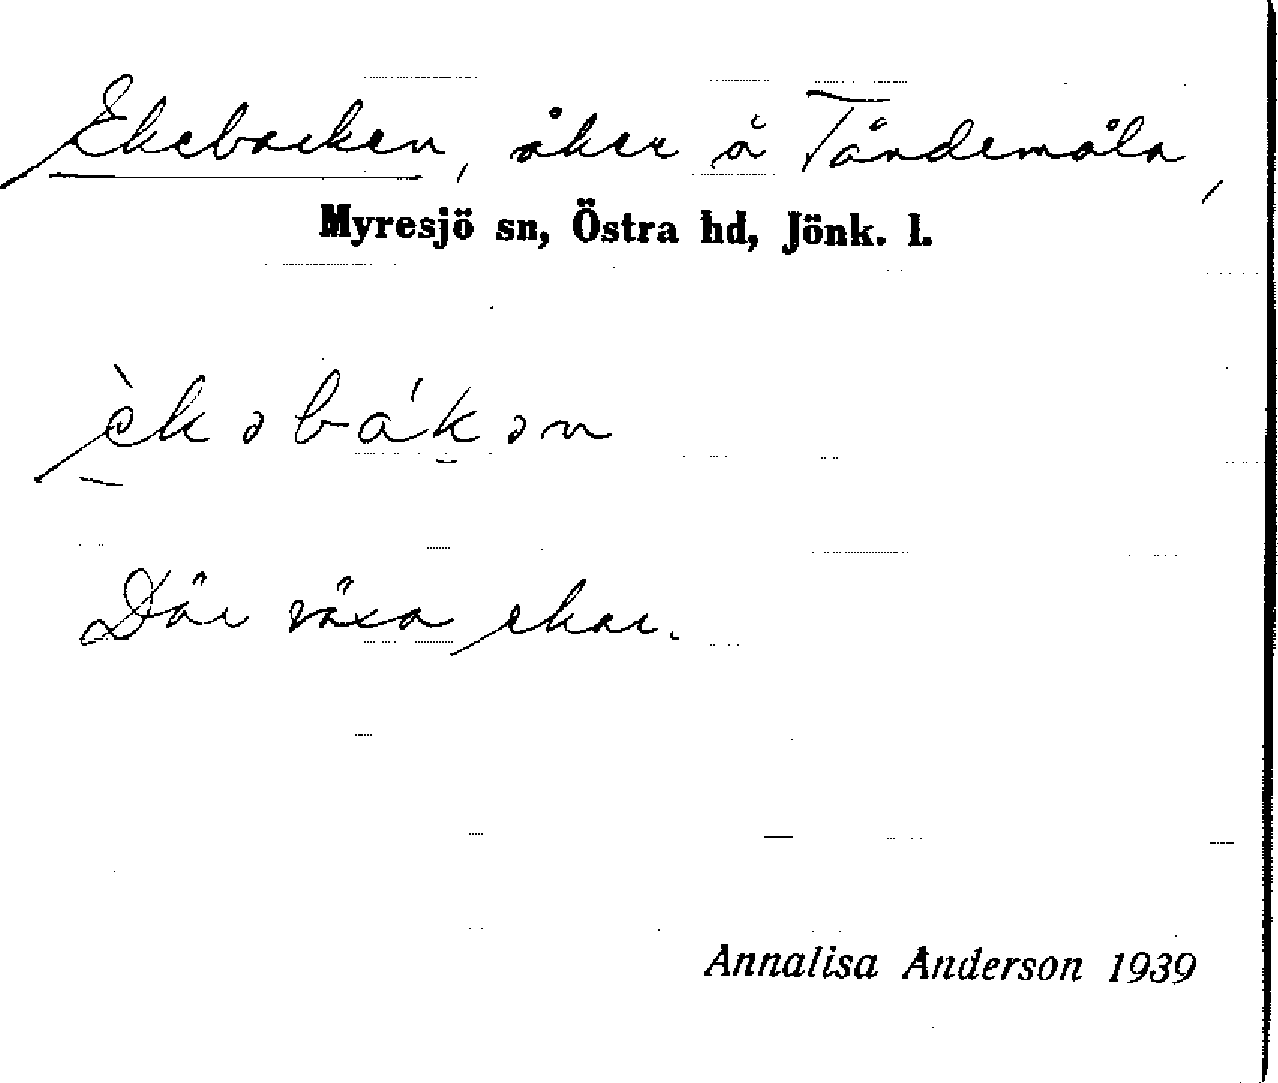 Ekebacken, åker å Tåndemåla,
Myresjö sn, Östra hd, Jönk. l.
èkəbák̠ən
Där växa ekar.
Annalisa Anderson 1939